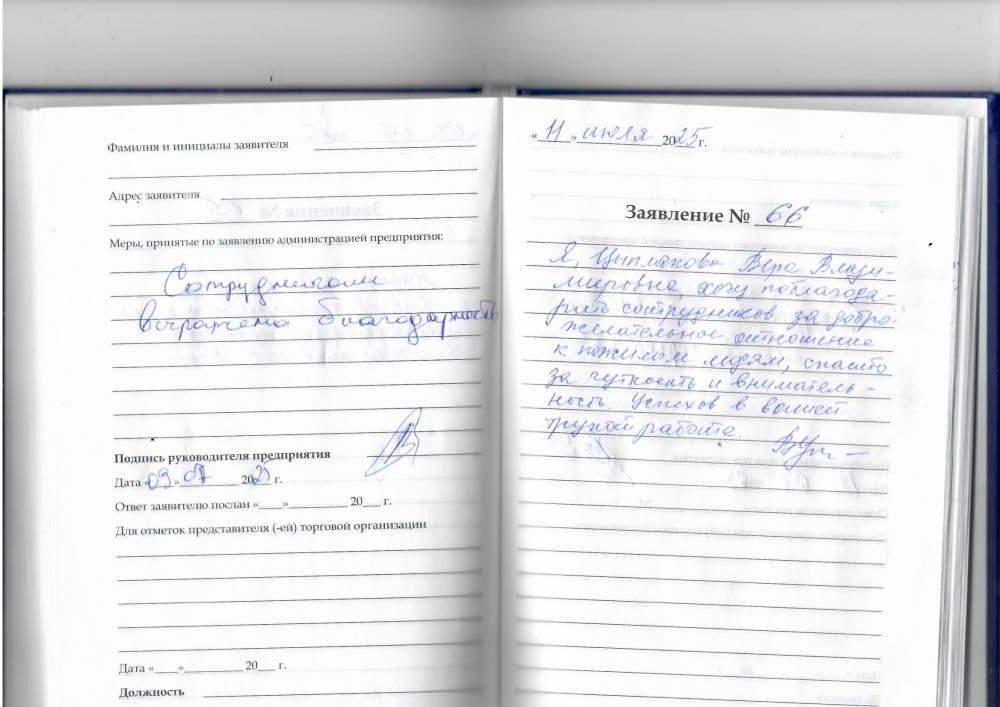 Фамилия и инициалы заявителя
Адрес заявителя
Меры, принятые по заявлению администрацией предприятия:
Сотрудникам
выражена благодарность
Подпись руководителя предприятия
Дата «09» 07 2025 г.
Ответ заявителю послан «____»__________ 20___ г.
Для отметок представителя (-ей) торговой организации
Дата «____»__________ 20___ г.
Должность
«11» июля 2025 г.
Заявление № 66
Я, Цыплакова Вера Влади-
мировна, хочу поблагода-
рить сотрудников за добро-
желательное отношение
к пожилым людям, спасибо
за чуткость и вниматель-
ность. Успехов в вашей
трудой работе.